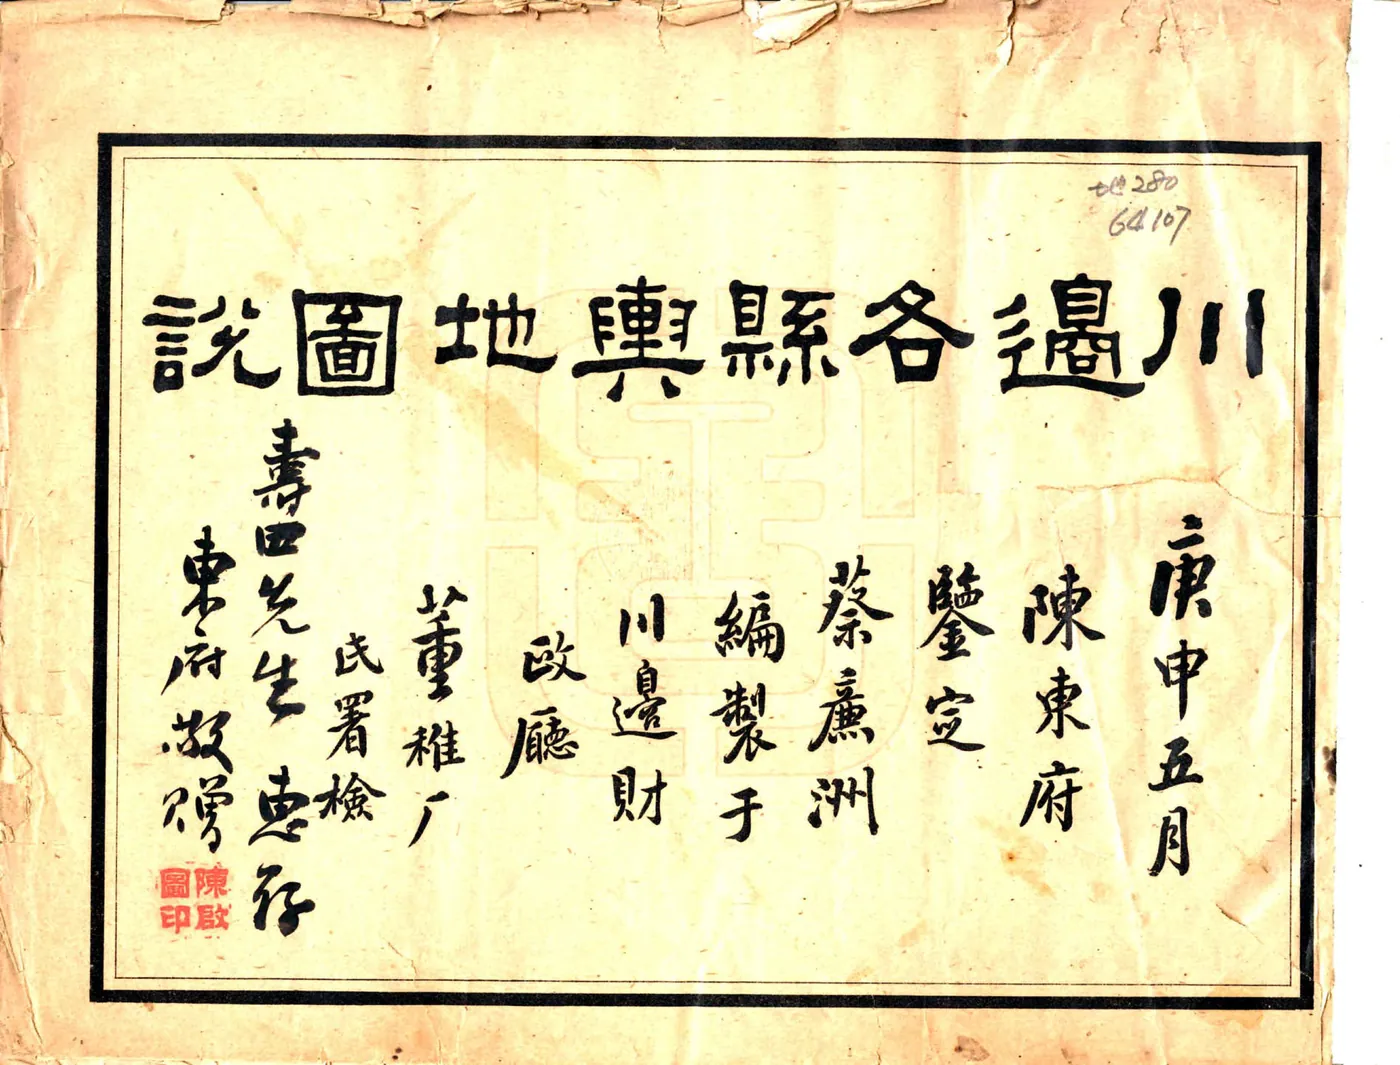 地280
64107
川邊各縣輿地圖說
庚申五月
陳東府
鑒定
蔡廉洲
編製于
川邊財
政廳
董稚厂
氏署檢
壽田先生惠存
東府敬贈
陳啟圖印